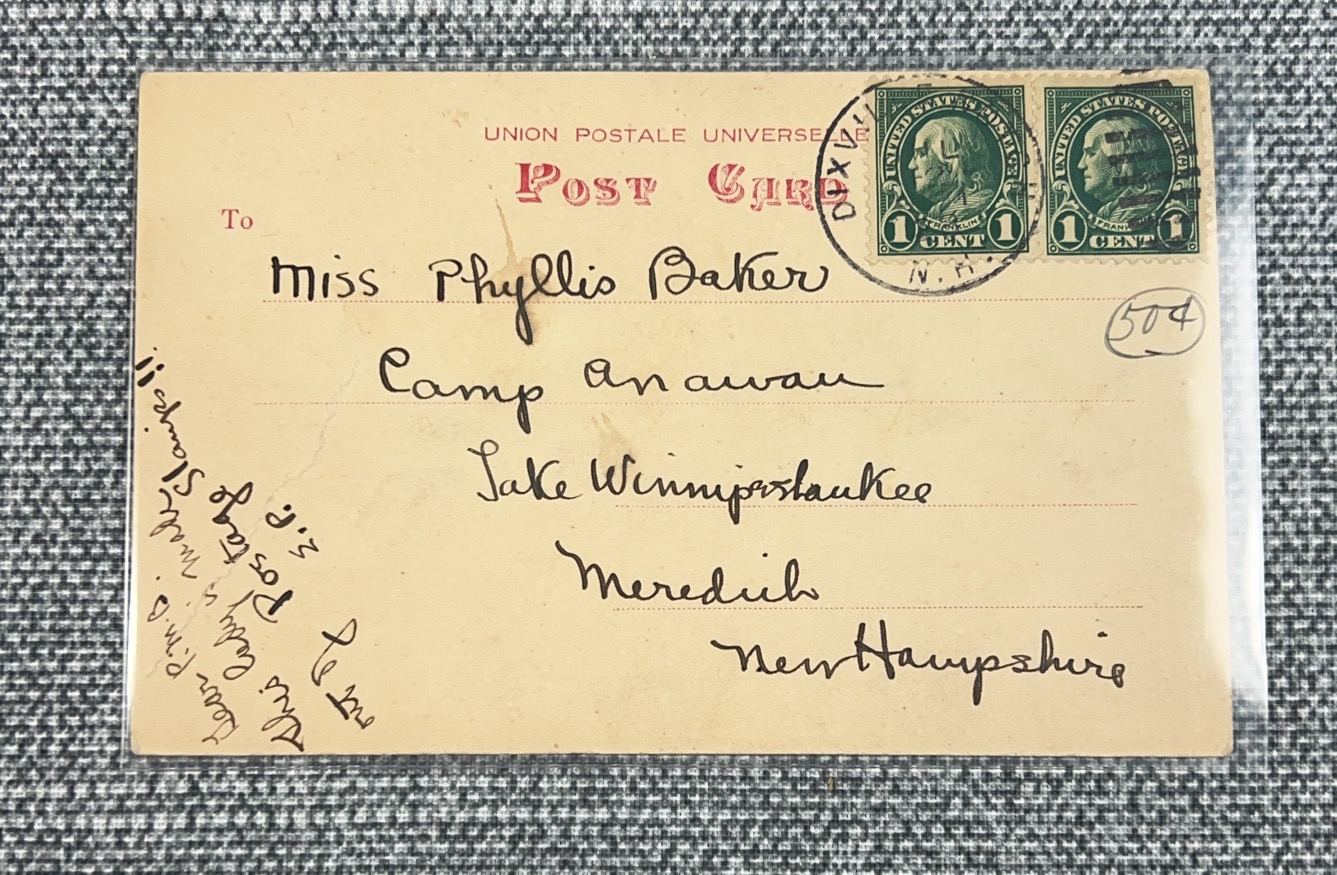 UNION POSTALE UNIVERSELLE
POST CARD
To
DIXVILLE
N.H.
UNITED STATES POSTAGE
FRANKLIN
1 CENT 1
UNITED STATES POSTAGE
FRANKLIN
1 CENT 1
Miss Phyllis Baker
50¢
Camp Anawan
Lake Winnipestaukee
Meredith
New Hampshire
Dear P.M.
make Stamps!!
this lady
Postage